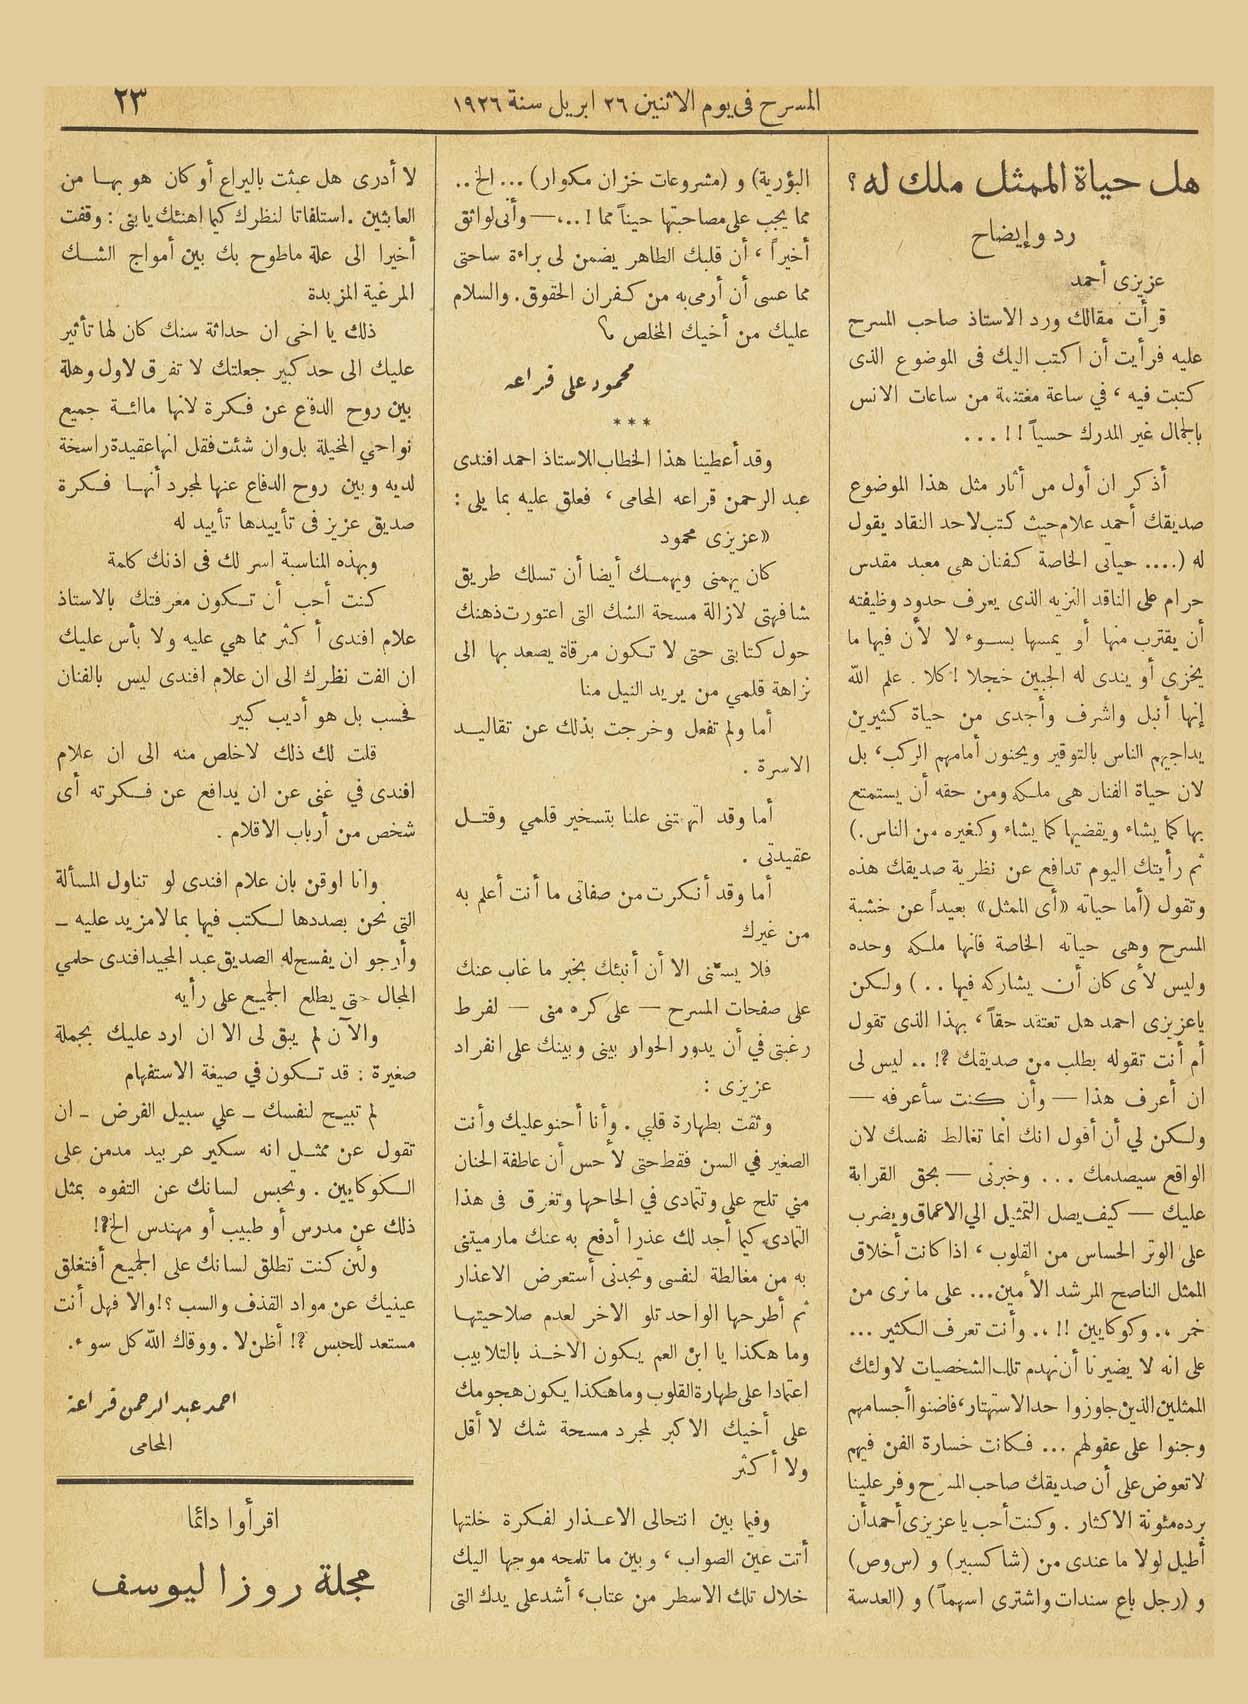 المسرح فى يوم الاثنين ٢٦ ابريل سنة ١٩٢٦
٢٣
هل حياة الممثل ملك له ؟
رد وإيضاح
عزيزى أحمد
قرأت مقالك ورد الاستاذ صاحب المسرح
عليه فرأيت أن اكتب اليك فى الموضوع الذى
كتبت فيه ، في ساعة مغتنمة من ساعات الانس
بالجمال غير المدرك حسياً !! ...
أذكر ان أول من أثار مثل هذا الموضوع
صديقك أحمد علام حيث كتب لاحد النقاد يقول
له (.... حياتى الخاصة كفنان هى معبد مقدس
حرام على الناقد النزيه الذى يعرف حدود وظيفته
أن يقترب منها أو يمسها بسوء لا لأن فيها ما
يخزى أو يندى له الجبين خجلا ! كلا . علم الله
إنها أنبل واشرف وأجدى من حياة كثيرين
يداجيهم الناس بالتوقير ويحنون أمامهم الركب، بل
لان حياة الفنان هى ملكه ومن حقه أن يستمتع
بها كما يشاء ويقضيها كما يشاء وكغيره من الناس.)
ثم رأيتك اليوم تدافع عن نظرية صديقك هذه
وتقول (أما حياته «أى الممثل» بعيداً عن خشبة
المسرح وهى حياته الخاصة فانها ملكه وحده
وليس لأى كان أن يشاركه فيها . . ) ولكن
ياعزيزى احمد هل تعتقد حقاً ، بهذا الذى تقول
أم أنت تقوله بطلب من صديقك ?! .. ليس لى
ان أعرف هذا — وأن كنت سأعرفه —
ولكن لي أن أقول انك انما تغالط نفسك لان
الواقع سيصدمك ... وخبرنى — بحق القرابة
عليك — كيف يصل التمثيل الي الاعماق ويضرب
على الوتر الحساس من القلوب ، اذا كانت أخلاق
الممثل الناصح المرشد الأمين... على ما نرى من
خمر ،. وكوكايين !! ،. وأنت تعرف الكثير ...
على انه لا يضيرنا أن نهدم تلك الشخصيات لاولئك
الممثلين الذين جاوزوا حد الاستهتار، فاضنوا أجسامهم
وجنوا على عقولهم ... فكانت خسارة الفن فيهم
لا تعوض على أن صديقك صاحب المسرح وفر علينا
برده مئونة الاكثار . وكنت أحب يا عزيزى أحمد أن
أطيل لولا ما عندى من (شاكسبير) و (س وص)
و (رجل باع سندات واشترى اسهماً) و (العدسة
البؤرية) و (مشروعات خزان مكوار) ... الخ ..
مما يجب على مصاحبتها حيناً مما ! ..، — وأنى لواثق
أخيراً ، أن قلبك الطاهر يضمن لى براءة ساحتى
مما عسى أن أرمى به من كفران الحقوق. والسلام
عليك من أخيك المخلص
محمود على قراعه
* * *
وقد أعطينا هذا الخطاب للاستاذ احمد افندى
عبد الرحمن قراعه المحامى ، فعلق عليه بما يلى :
«عزيزى محمود
كان يهمنى ويهمك أيضا أن تسلك طريق
شافهتى لازالة مسحة الشك التى اعتورت ذهنك
حول كتابتى حتى لا تكون مرقاة يصعد بها الى
نزاهة قلمي من يريد النيل منا
أما ولم تفعل وخرجت بذلك عن تقاليد
الاسرة .
أما وقد اتهمتنى علنا بتسخير قلمي وقتل
عقيدتى .
أما وقد أنكرت من صفاتى ما أنت أعلم به
من غيرك
فلا يسعنى الا أن أنبئك بخبر ما غاب عنك
على صفحات المسرح — على كره منى — لفرط
رغبتى في أن يدور الحوار بينى وبينك على انفراد
عزيزى :
وثقت بطهارة قلبي . وأنا أحنو عليك وأنت
الصغير في السن فقط حتى لأحس أن عاطفة الحنان
مني تلح على وتتمادى في الحاحها وتغرق فى هذا
التمادى كيما أجد لك عذرا أدفع به عنك مارميتنى
به من مغالطة لنفسى وتجدنى أستعرض الاعذار
ثم أطرحها الواحد تلو الاخر لعدم صلاحيتها
وما هكذا يا ابن العم يكون الاخذ بالتلابيب
اعتمادا على طهارة القلوب وما هكذا يكون هجومك
على أخيك الاكبر لمجرد مسحة شك لا أقل
ولا أكثر
وفيما بين انتحالى الاعذار لفكرة خلتها
أتت عين الصواب ، وبين ما تلمحه موجها اليك
خلال تلك الاسطر من عتاب، أشد على يدك التى
لا أدرى هل عبثت باليراع أو كان هو بها من
العابثين . استلفاتا لنظرك كيما اهنئك يابنى : وقفت
أخيرا الى علة ماطوح بك بين أمواج الشك
المرغية المزبدة
ذلك يا اخى ان حداثة سنك كان لها تأثير
عليك الى حد كبير جعلتك لا تفرق لاول وهلة
بين روح الدفع عن فكرة لانها مالئة جميع
نواحي المخيلة بل وان شئت فقل انها عقيدة راسخة
لديه وبين روح الدفاع عنها لمجرد أنها فكرة
صديق عزيز فى تأييدها تأييد له
وبهذه المناسبة اسر لك فى اذنك كلمة
كنت أحب أن تكون معرفتك بالاستاذ
علام افندى أكثر مما هي عليه ولا بأس عليك
ان الفت نظرك الى ان علام افندى ليس بالفنان
فحسب بل هو أديب كبير
قلت لك ذلك لاخلص منه الى ان علام
افندى في غنى عن ان يدافع عن فكرته أى
شخص من أرباب الاقلام .
وانا اوقن بان علام افندى لو تناول المسألة
التى نحن بصددها لكتب فيها بما لامزيد عليه ـ
وأرجو ان يفسح له الصديق عبد المجيد افندى حلمي
المجال حتى يطلع الجميع على رأيه
والآن لم يبق لى الا ان ارد عليك بجملة
صغيرة : قد تكون في صيغة الاستفهام
لم تبيح لنفسك ـ علي سبيل الفرض ـ ان
تقول عن ممثل انه سكير عربيد مدمن على
الكوكايين . وتحبس لسانك عن التفوه بمثل
ذلك عن مدرس أو طبيب أو مهندس الخ?!
ولئن كنت تطلق لسانك على الجميع أفتغلق
عينيك عن مواد القذف والسب ؟! والا فهل أنت
مستعد للحبس ?! أظن لا . ووقاك الله كل سوء.
احمد عبد الرحمن قراعة
المحامى
اقرأوا دائما
مجلة روز اليوسف